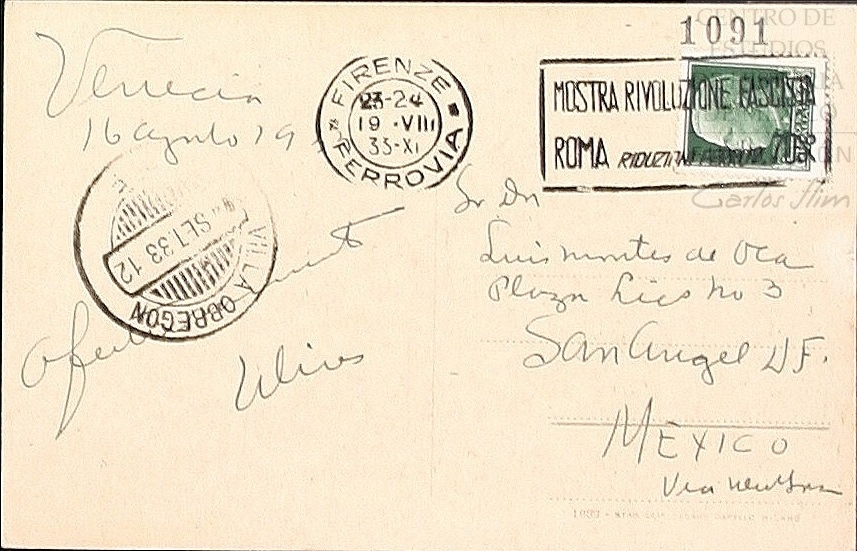 1091
CENTRO DE
ESTUDIOS
Carlos Slim
Venecia
16 agosto 19
FIRENZE
23-24
19 · VIII
33-XI
FERROVIA
MOSTRA RIVOLUZIONE FASCISTA
ROMA RIDUZIONI 70%
VILLA OBREGON
SET. 33 12
Sr Dn
Luis Montes de Oca
Plaza Lics No 3
San Angel D.F.
MEXICO
Via New York
Ulises
1033
MILANO